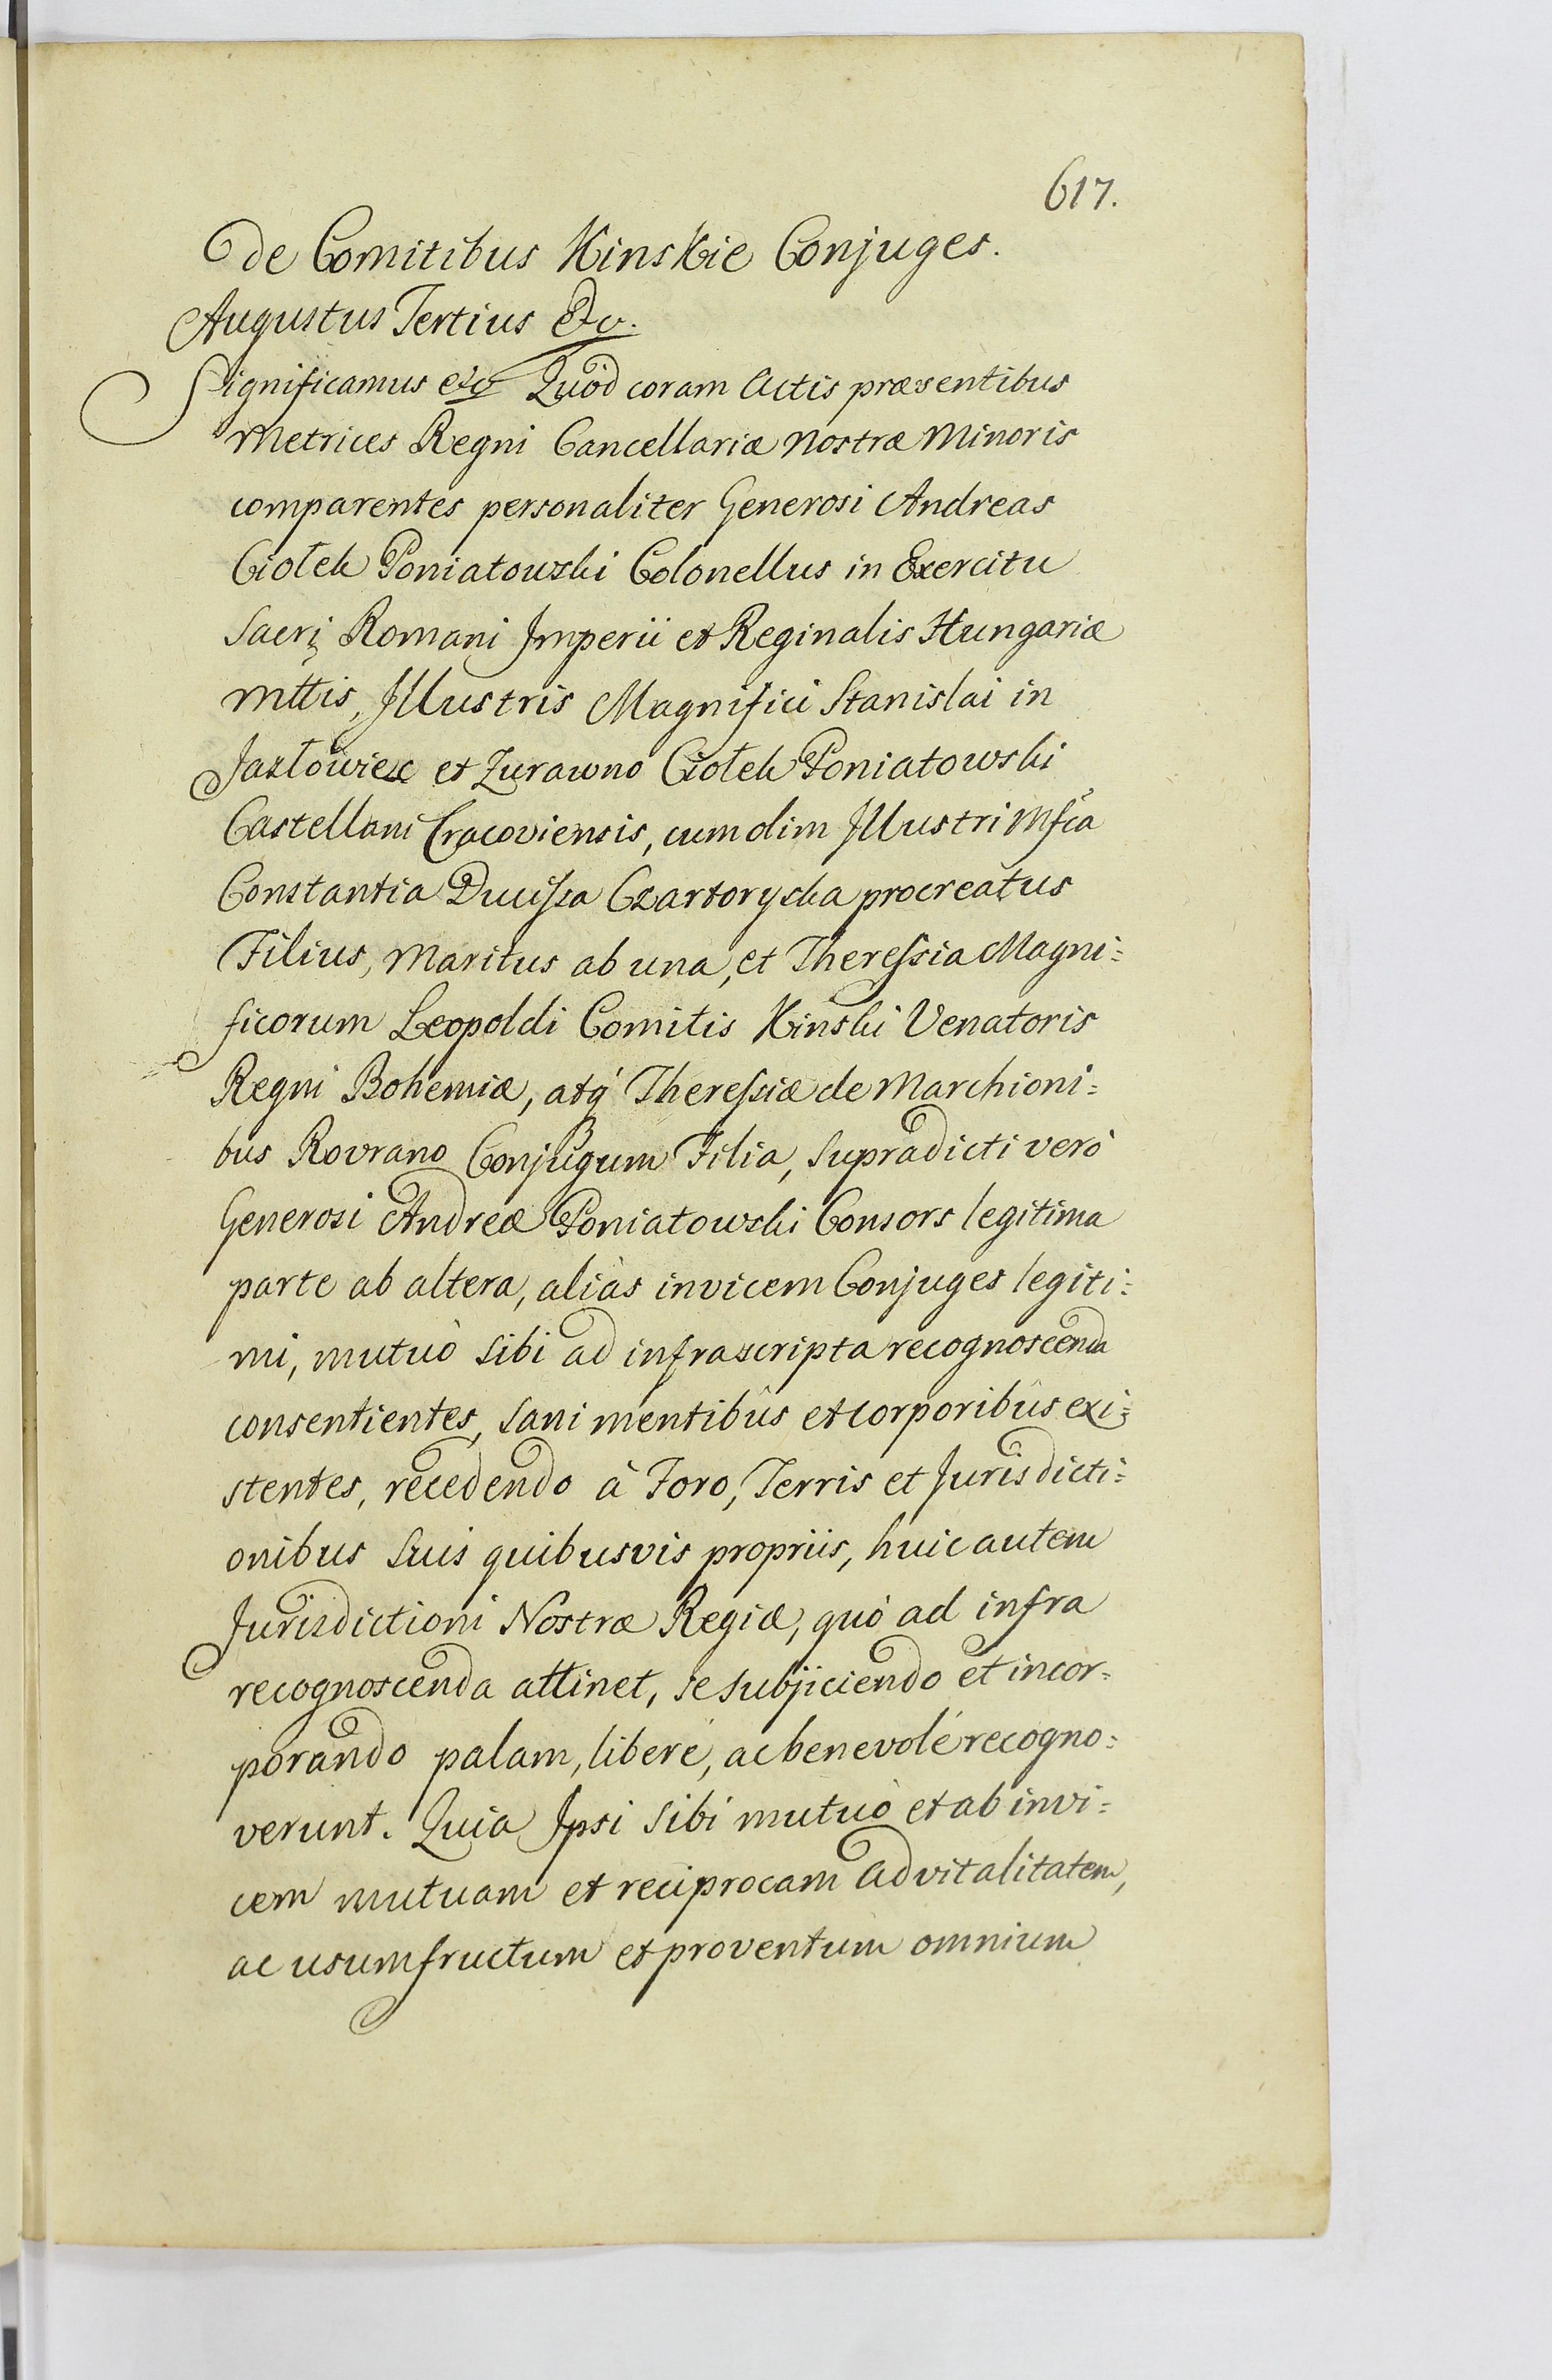 617.
de Comitibus Kinskie Conjuges.
Augustus Tertius etc.
Significamus etc Quòd coram Actis præsentibus
Metrices Regni Cancellariæ Nostræ Minoris
comparentes personaliter Generosi Andreas
Ciołek Poniatowski Colonellus in Exercitu
Sacri Romani Imperii et Reginalis Hungariæ
Mttis, Illustris Magnifici Stanislai in
Jazłowiec et Zurawno Ciołek Poniatowski
Castellani Cracoviensis, cum olim Illustri Mfca
Constantia Ducissa Czartoryska procreatus
Filius, Maritus ab una, et Theressia Magni=
ficorum Leopoldi Comitis Kinski Venatoris
Regni Bohemiæ, atq́ Theressiæ de Marchioni=
bus Rovrano Conjugum Filia, supradicti verò
Generosi Andreæ Poniatowski Consors legitima
parte ab altera, aliàs invicem Conjuges legiti=
mi, mutuò sibi ad infrascripta recognoscenda
consentientes, sani mentibûs et corporibûs exi=
stentes, recedendo à Foro, Terris et Jurisdicti=
onibus suis quibusvis propriis, huic autem
Jurisdictioni Nostræ Regiæ, quò ad infra
recognoscenda attinet, se subjiciendo et incor=
porando palam, liberé, ac benevolé recogno=
verunt. Quia Ipsi sibi mutuò et ab invi=
cem mutuam et reciprocam Advitalitatem,
ac usumfructum et proventum omnium